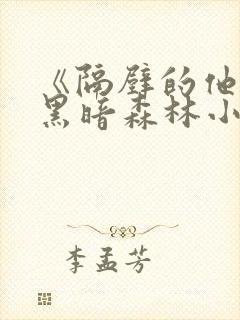 《隔壁的他
黑暗森林小
李孟芳